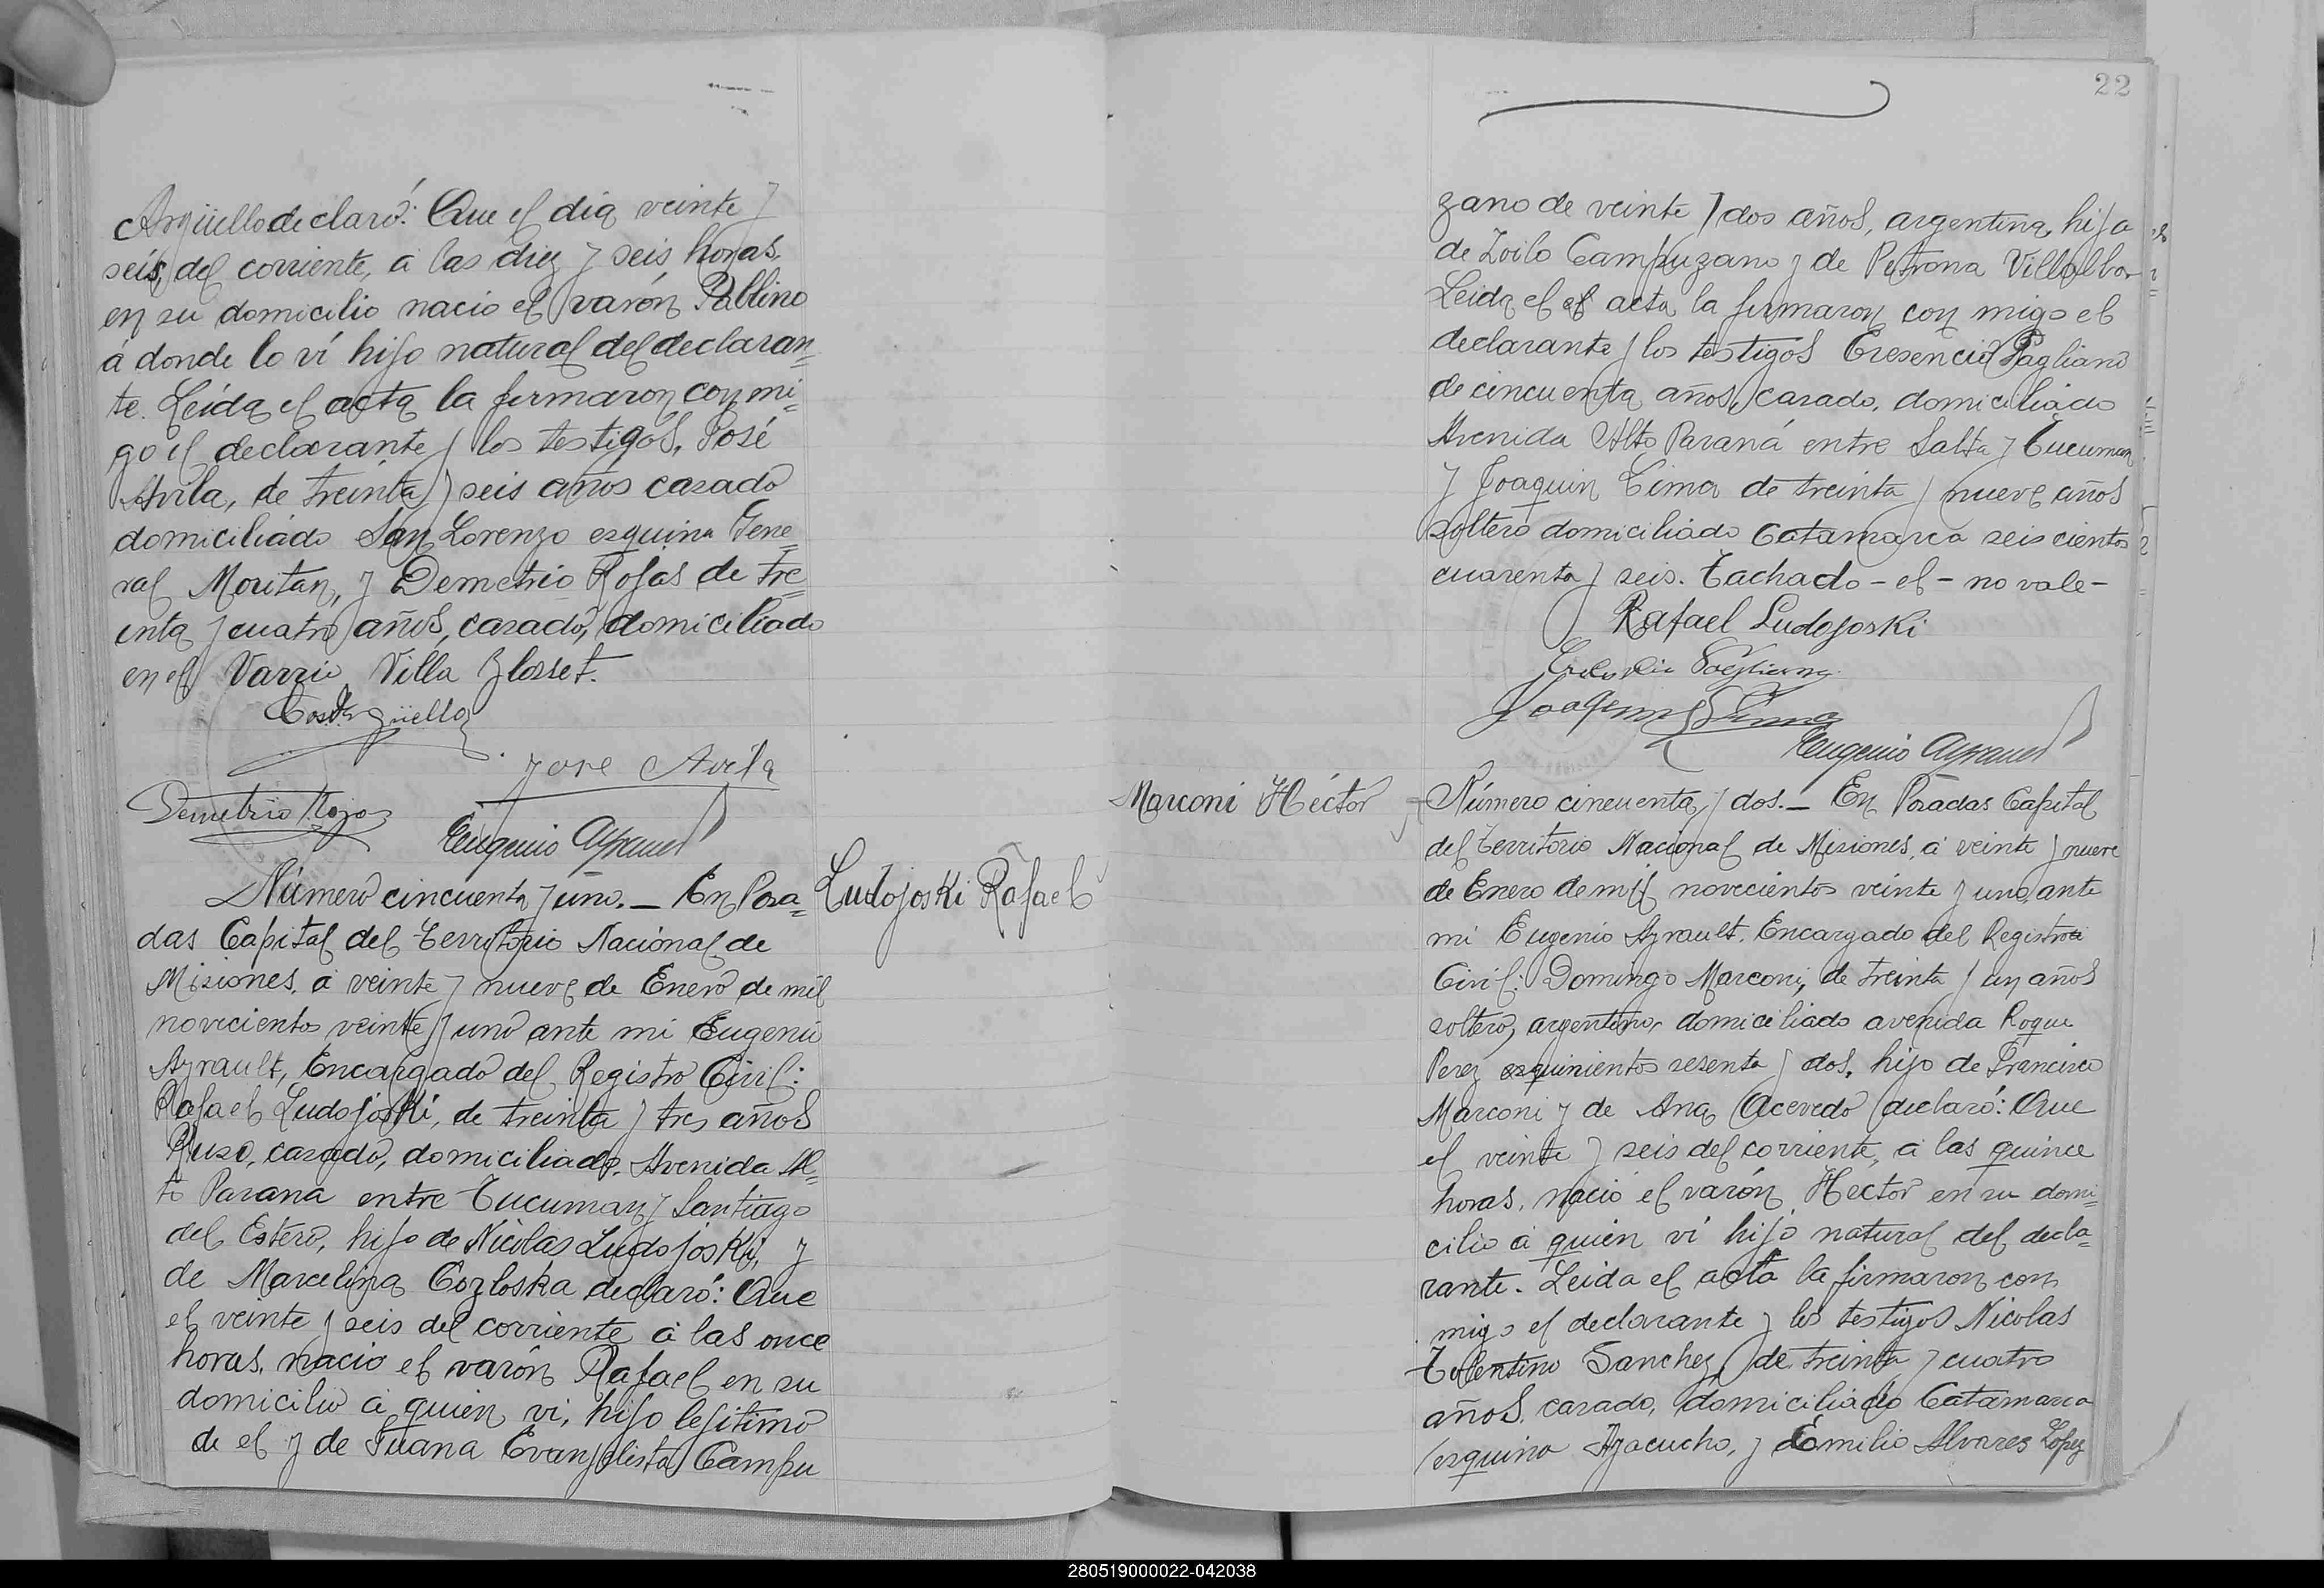 Argüello declaró: Que el dia veinte y
seis, del corriente, á las diez y seis horas,
en su domicilio nacio el varón Pablino
á donde lo ví hijo natural del declaran=
te. Leida el acta la firmaron con mi=
go el declarante y los testigos, José
Avila, de treinta y seis años casado
domiciliado San Lorenzo esquina Gene=
ral y Demetrio Rojas de tre=
inta y cuatro años, casado, domiciliado
en el Varrio Villa
Argüello
Jose Avila
Demetrio Rojas
Eugenio Ayrault
Número cincuenta y uno. — En Posa=
Ludojoski Rafael
das Capital del Territorio Nacional de
Misiones, á veinte y nueve de Enero de mil
novecientos veinte y uno ante mi Eugenio
Ayrault, Encargado del Registro Civil:
Rafael Ludojoski, de treinta y tres años
Ruso, casado, domiciliado Avenida Al=
to Parana entre Tucuman y Santiago
del Estero, hijo de Nicolas Ludojoski, y
de Marcelina Cozloska declaró: Que
el veinte y seis del corriente á las once
horas, nacio el varón Rafael en su
domicilio á quien vi, hijo lejitimo
de el y de Juana Evanjelista Campu
22
zano de veinte y dos años, argentina, hija
de Zoilo Campuzano y de Petrona Villalba
Leida el el acta la firmaron con migo el
declarante y los testigos Cresencio Pagliano
de cincuenta años, casado, domiciliado
Avenida Alto Paraná entre Salta y Tucuman
y Joaquin Lima de treinta y nueve años
soltero domiciliado Catamarca seis cientos
cuarenta y seis. Tachado - el - no vale -
Rafael Ludojoski
Cresencio Pagliano
Joaquin Lima
Eugenio Ayrault
Marconi Héctor
Número cincuenta y dos. — En Posadas Capital
del Territorio Nacional de Misiones, á veinte y nueve
de Enero de mil novecientos veinte y uno, ante
mi Eugenio Ayrault, Encargado del Registro
Civil: Domingo Marconi, de treinta y un años
soltero, argentino, domiciliado avenida Roque
Perez quinientos sesenta y dos, hijo de Francisco
Marconi y de Ana Acevedo declaró: Que
el veinte y seis del corriente, á las quince
horas, nació el varón Hector en su domi=
cilio á quien vi hijo natural del decla=
rante. Leida el acta la firmaron con
migo el declarante y los testigos Nicolas
Tolentino Sanchez, de treinta y cuatro
años, casado, domiciliado Catamarca
esquina Ayacucho, y Emilio Alvares Lopez
280519000022-042038